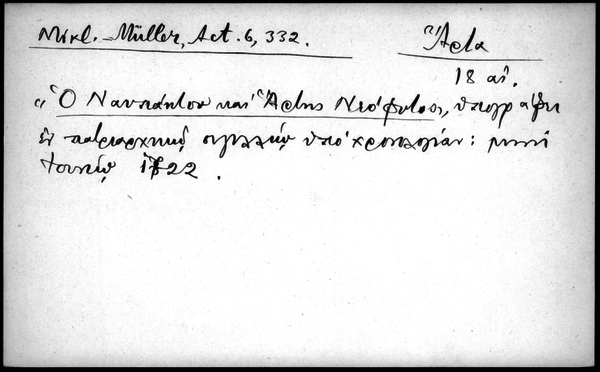 Mikl.-Müller, Act. 6, 332.
Ἄρτα
18 αἰ.
"Ὁ Ναυπάκτου καὶ Ἄρτης Νεόφυτος, ὑπογράφει
ἐν πατριαρχικῷ σιγιλλίῳ ὑπὸ χρονολογίαν: μηνὶ
Ἰουνίῳ 1722.